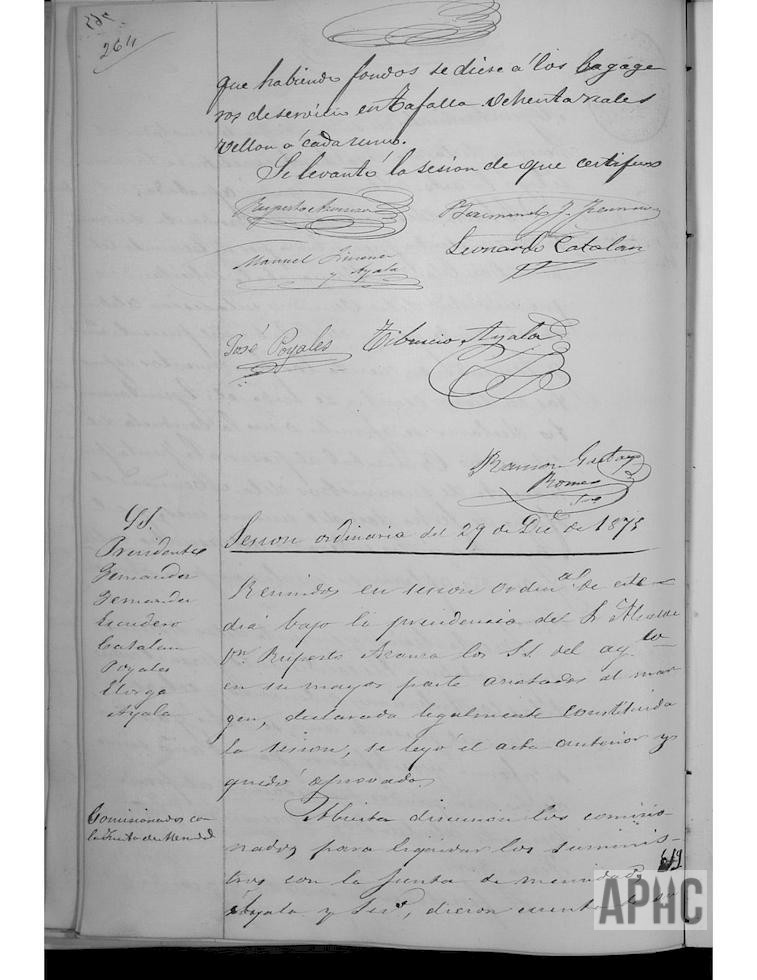 264
que habiendo fondos se diese a los bagage
ros de servicio en Tafalla ochenta reales
vellon á cada uno.
Se levantó la sesion de que certifico
Ruperto
Leonardo Catalan
Manuel Jimenez
y Ayala
José Poyales Tiburcio Ayala
Ramon
Romeo
Sesion ordinaria del 29 de Dic.e de 1875
SS.
Presidente
Fernandez
Fernandez
Escudero
Catalan
Poyales
Elorga
Ayala
Reunidos en sesion ordin.al de este
dia bajo la presidencia del Sr Alcalde
Dn. Ruperto los SS. del ay.to
en su mayor parte anotados al mar
gen, declarada legalmente constituida
la sesion, se leyó el acta anterior y
quedó aprovada
Comisionados con
la Junta de Mendd
Abierta discusion los comisio-
nados para liquidar los suminis-
tros con la Junta de
Ayala y dieron cuenta
APHC